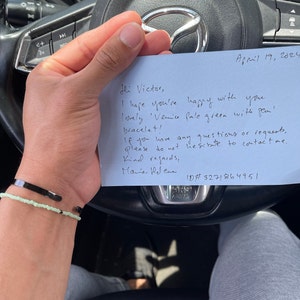 April 19, 2024
Hi Victor,
I hope you're happy with your
lovely 'Venice pale green with gem'
bracelet!
If you have any questions or requests,
please do not hesitate to contact me.
Kind regards,
Maria Helena
ID#3221864951